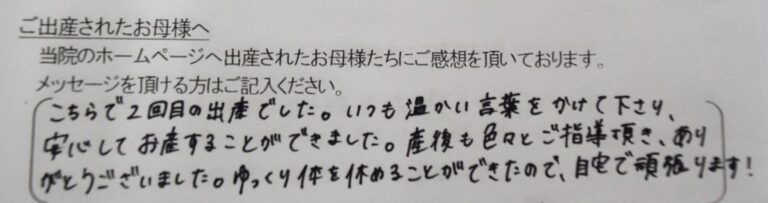 ご出産されたお母様へ
当院のホームページへ出産されたお母様たちにご感想を頂いております。
メッセージを頂ける方はご記入ください。
こちらで2回目の出産でした。いつも温かい言葉をかけて下さり、
安心してお産することができました。産後も色々とご指導頂き、あり
がとうございました。ゆっくり体を休めることができたので、自宅で頑張ります!